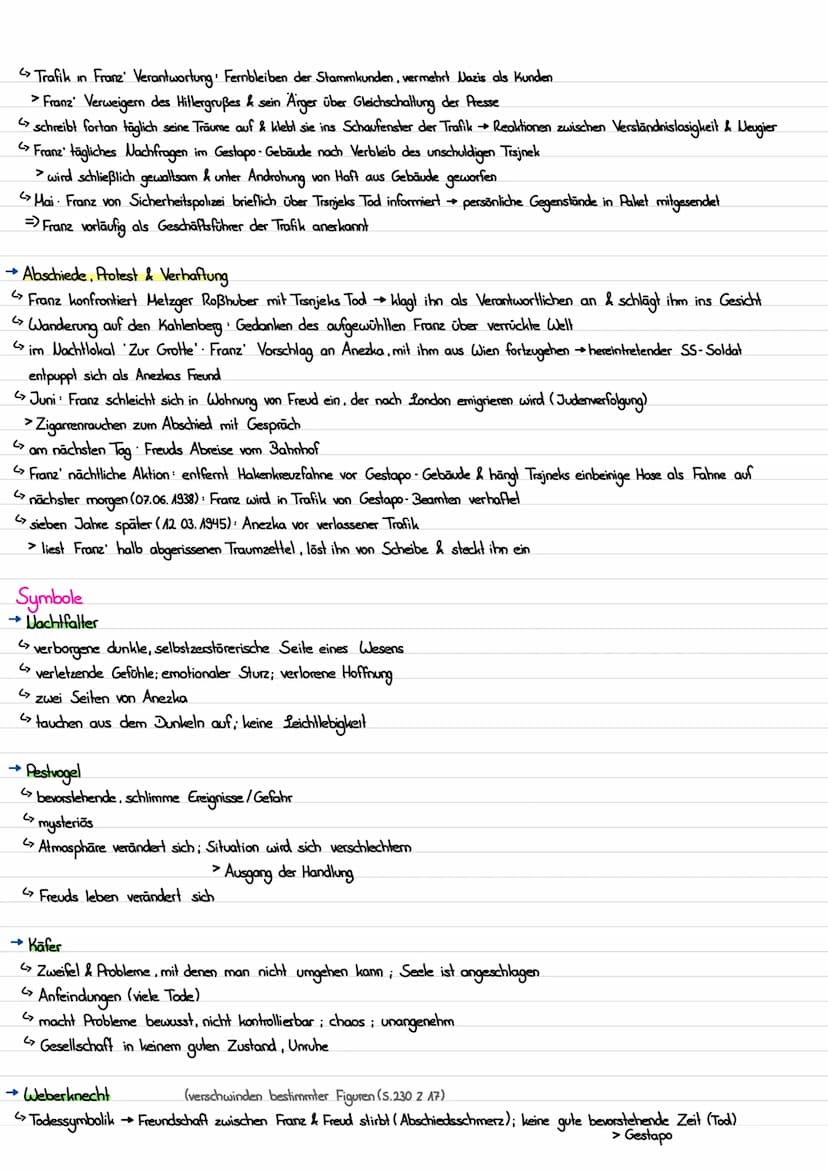 ↳ Trafik in Franz' Verantwortung: Fernbleiben der Stammkunden, vermehrt Nazis als Kunden
> Franz' Verweigern des Hitlergrußes & sein Ärger über Gleichschaltung der Presse
↳ schreibt fortan täglich seine Träume auf & klebt sie ins Schaufenster der Trafik → Reaktionen zwischen Verständnislosigkeit & Neugier
↳ Franz' tägliches Nachfragen im Gestapo-Gebäude nach Verbleib des unschuldigen Trsjnek
> wird schließlich gewaltsam & unter Androhung von Haft aus Gebäude geworfen
↳ Mai: Franz von Sicherheitspolizei brieflich über Trsnjeks Tod informiert → persönliche Gegenstände in Paket mitgesendet
=> Franz vorläufig als Geschäftsführer der Trafik anerkannt
→ Abschiede, Protest & Verhaftung
↳ Franz konfrontiert Metzger Roßhuber mit Trsnjeks Tod → klagt ihn als Verantwortlichen an & schlägt ihm ins Gesicht
↳ Wanderung auf den Kahlenberg: Gedanken des aufgewühlten Franz über verrückte Welt
↳ im Nachtlokal 'Zur Grotte': Franz' Vorschlag an Anezka, mit ihm aus Wien fortzugehen → hereintretender SS-Soldat
entpuppt sich als Anezkas Freund
↳ Juni: Franz schleicht sich in Wohnung von Freud ein, der nach London emigrieren wird (Judenverfolgung)
> Zigarrenrauchen zum Abschied mit Gespräch
↳ am nächsten Tag: Freuds Abreise vom Bahnhof
↳ Franz' nächtliche Aktion: entfernt Hakenkreuzfahne vor Gestapo-Gebäude & hängt Trsjneks einbeinige Hose als Fahne auf
↳ nächster morgen (07.06.1938): Franz wird in Trafik von Gestapo-Beamten verhaftet
↳ sieben Jahre später (12.03.1945): Anezka vor verlassener Trafik
> liest Franz' halb abgerissenen Traumzettel, löst ihn von Scheibe & steckt ihn ein
Symbole
→ Nachtfalter
↳ verborgene dunkle, selbstzerstörerische Seite eines Wesens
↳ verletzende Gefühle; emotionaler Sturz; verlorene Hoffnung
↳ zwei Seiten von Anezka
↳ tauchen aus dem Dunkeln auf; keine Leichtlebigkeit
→ Pestvogel
↳ bevorstehende, schlimme Ereignisse/Gefahr
↳ mysteriös
↳ Atmosphäre verändert sich; Situation wird sich verschlechtern
> Ausgang der Handlung
↳ Freuds leben verändert sich
→ Käfer
↳ Zweifel & Probleme, mit denen man nicht umgehen kann; Seele ist angeschlagen
↳ Anfeindungen (viele Tode)
↳ macht Probleme bewusst, nicht kontrollierbar; chaos; unangenehm
↳ Gesellschaft in keinem guten Zustand, Unruhe
→ Weberknecht (verschwinden bestimmter Figuren (S.230 Z 17)
↳ Todessymbolik → Freundschaft zwischen Franz & Freud stirbt (Abschiedsschmerz); keine gute bevorstehende Zeit (Tod)
> Gestapo